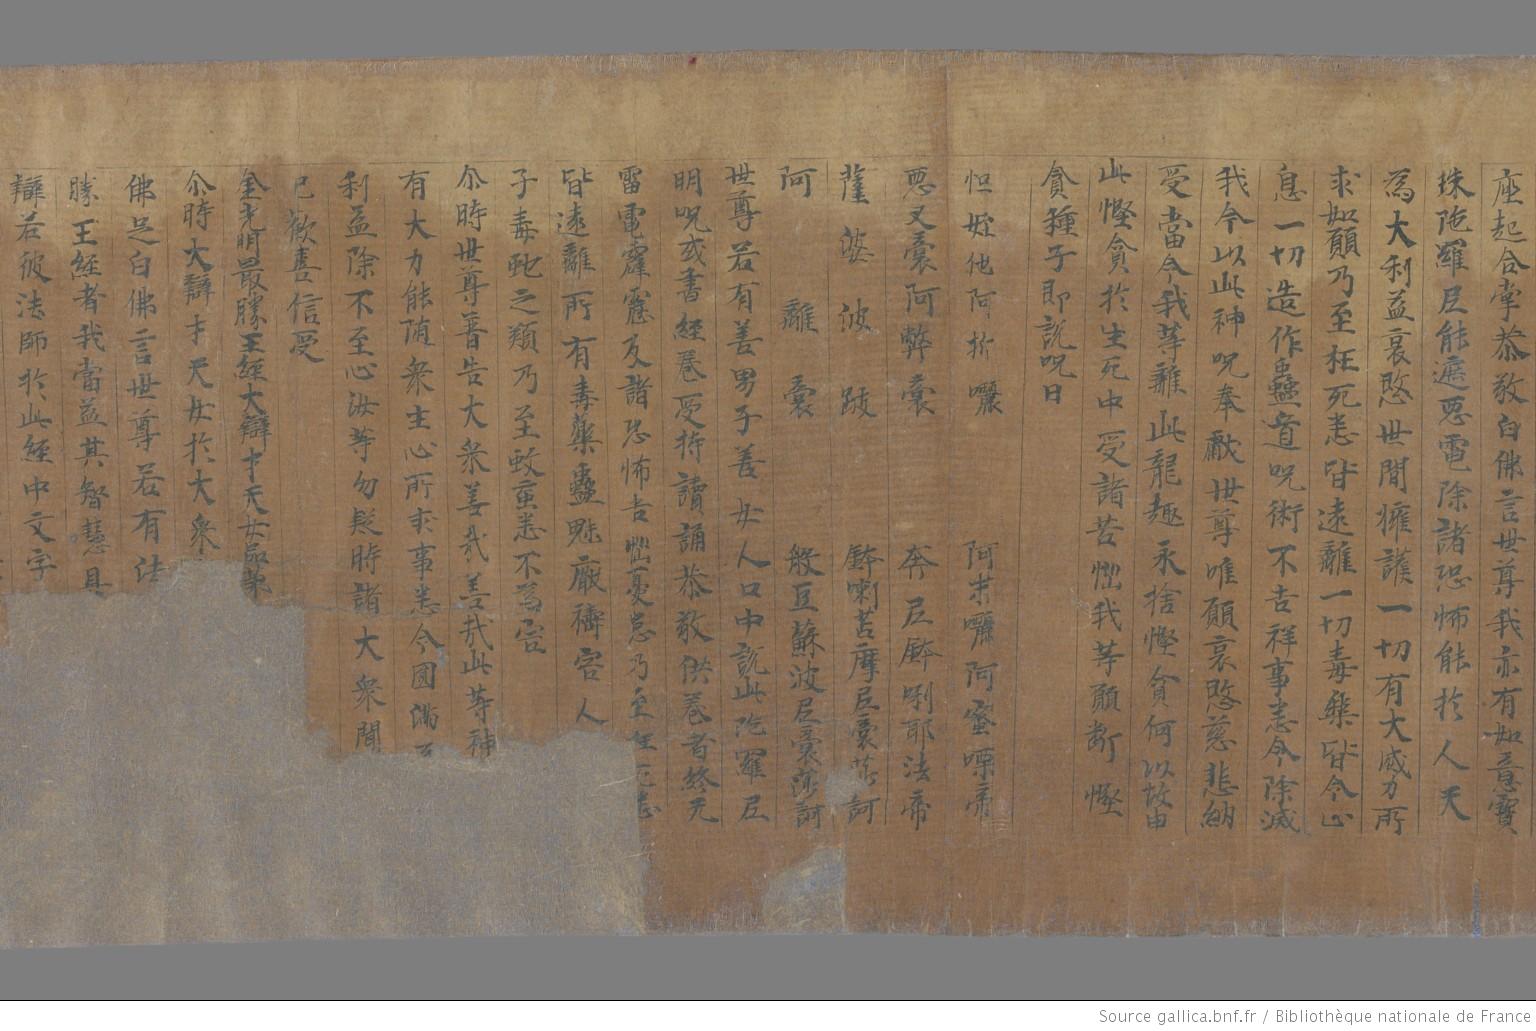 座起合掌恭敬白佛言世尊我亦有如意寶
珠陁羅尼能遮惡電除諸恐怖能於人天
為大利益哀愍世間擁護一切有大威力所
求如願乃至枉死悉皆遠離一切毒藥皆令止
息一切造作蠱道呪術不吉祥事悉令除滅
我今以此神呪奉獻世尊唯願哀愍慈悲納
受當令我等離此龍趣永捨慳貪何以故由
此慳貪於生死中受諸苦惱我等願斷慳
貪種子即說呪曰
怛姪他阿折囉 阿末囉阿蜜㗚帝
惡叉裏阿弊裏 奔尼鉢唎耶法帝
薩婆波跛 鉢喇苫摩尼裏莎訶
阿離裏 般豆蘇波尼裏莎訶
世尊若有善男子善女人口中說此陁羅尼
明呪或書經卷受持讀誦恭敬供養者終无
雷電霹靂及諸恐怖苦惱憂患乃至枉死悉
皆遠離所有毒藥蠱魅厭禱害人
子毒虵之類乃至蚊䖟悉不為害
尒時世尊普告大衆善哉善哉此等神
有大力能随衆生心所求事悉令圓滿
利益除不至心汝等勿疑時諸大衆聞
已歡喜信受
金光明最勝王經大辯才天女品第
尒時大辯才天女於大衆
佛足白佛言世尊若有法
勝王經者我當益其智慧具
辯若彼法師於此經中文字
Source gallica.bnf.fr / Bibliothèque nationale de France